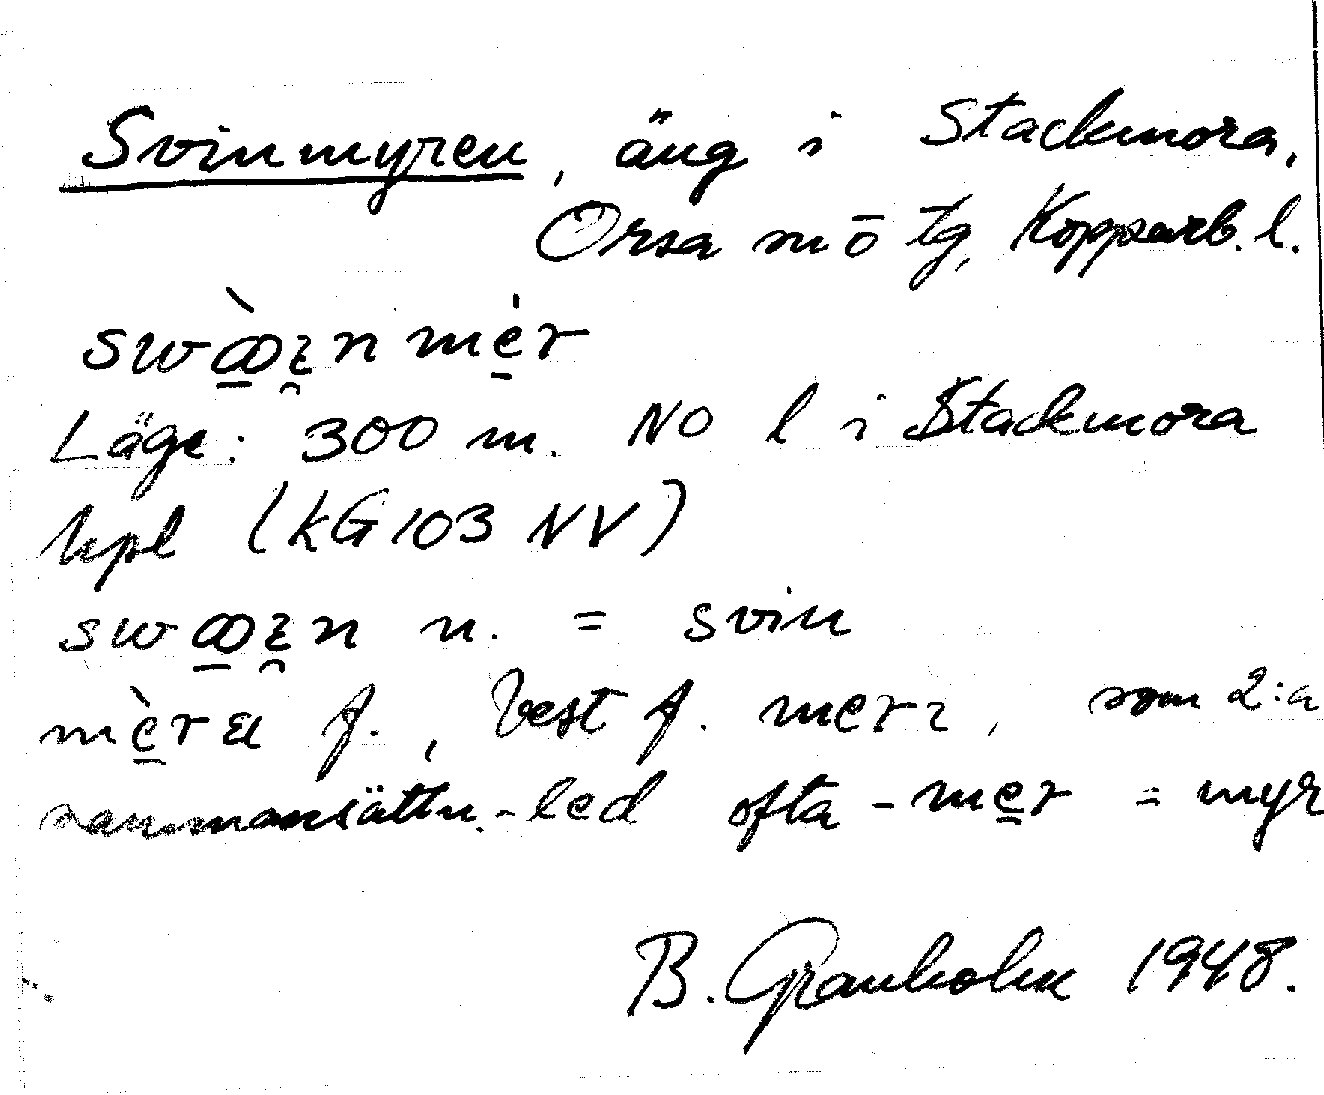 Svinmyren, äng i Stackmora,
Orsa sn ö tg, Kopparb. l.
Läge: 300 m. NO l i Stackmora
hpl (KG103 NV)
n. = svin
f., best f. som 2:a
sammansättn.-led ofta -me̱r = myr
B. Granholm 1948.